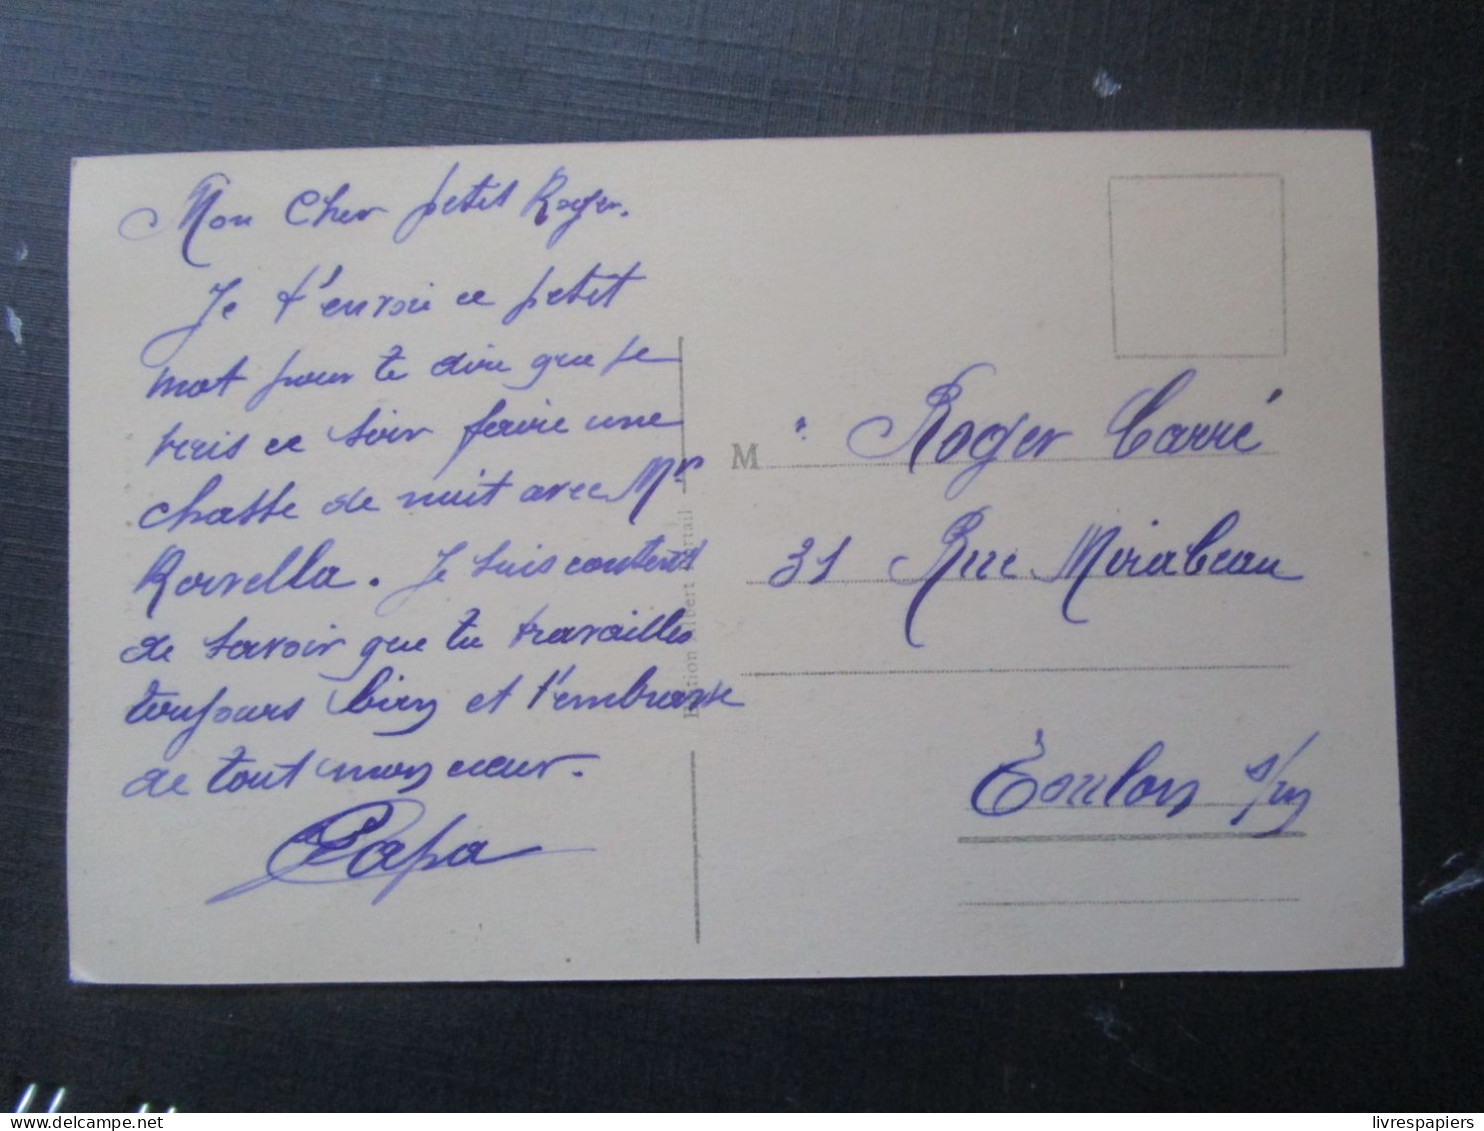 Mon Cher petit Roger.
Je t'envoi ce petit
mot pour te dire que je
vais ce soir faire une
chasse de nuit avec Mr
Rovella. Je suis content
de savoir que tu travailles
toujours bien et t'embrasse
de tout mon cœur.
Papa
Edition Albert
M Roger Carré
31 Rue Mirabeau
Toulon s/m
livrespapiers